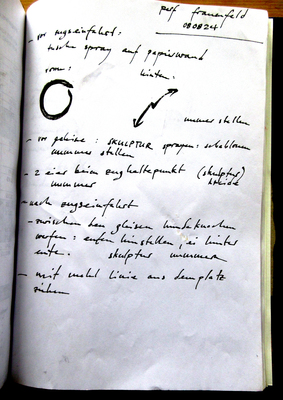 perf frauenfeld
080824
- vor zugseinfahrt:
tusche spray auf papierwand
vorn: hinten:
nummer stellen
- vor geleise: SKULPTUR sprayen: schablonen
nummer stellen
- 2 eier beim zughaltepunkt (skulptur)
nummer kreide
- nach zugseinfahrt
- zwischen den gleisen hundekuchen
werfen: enten hinstellen, ei hinter
ente. skulptur nummern
- mit mehl linie aus dem platz
ziehen